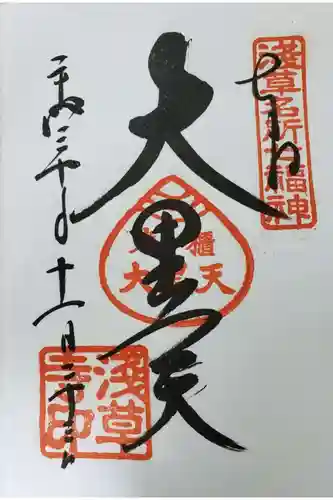 奉拝
浅草名所七福神
大黒天
米櫃
大黒天
平成三十年十一月二十三日
浅草
寺印